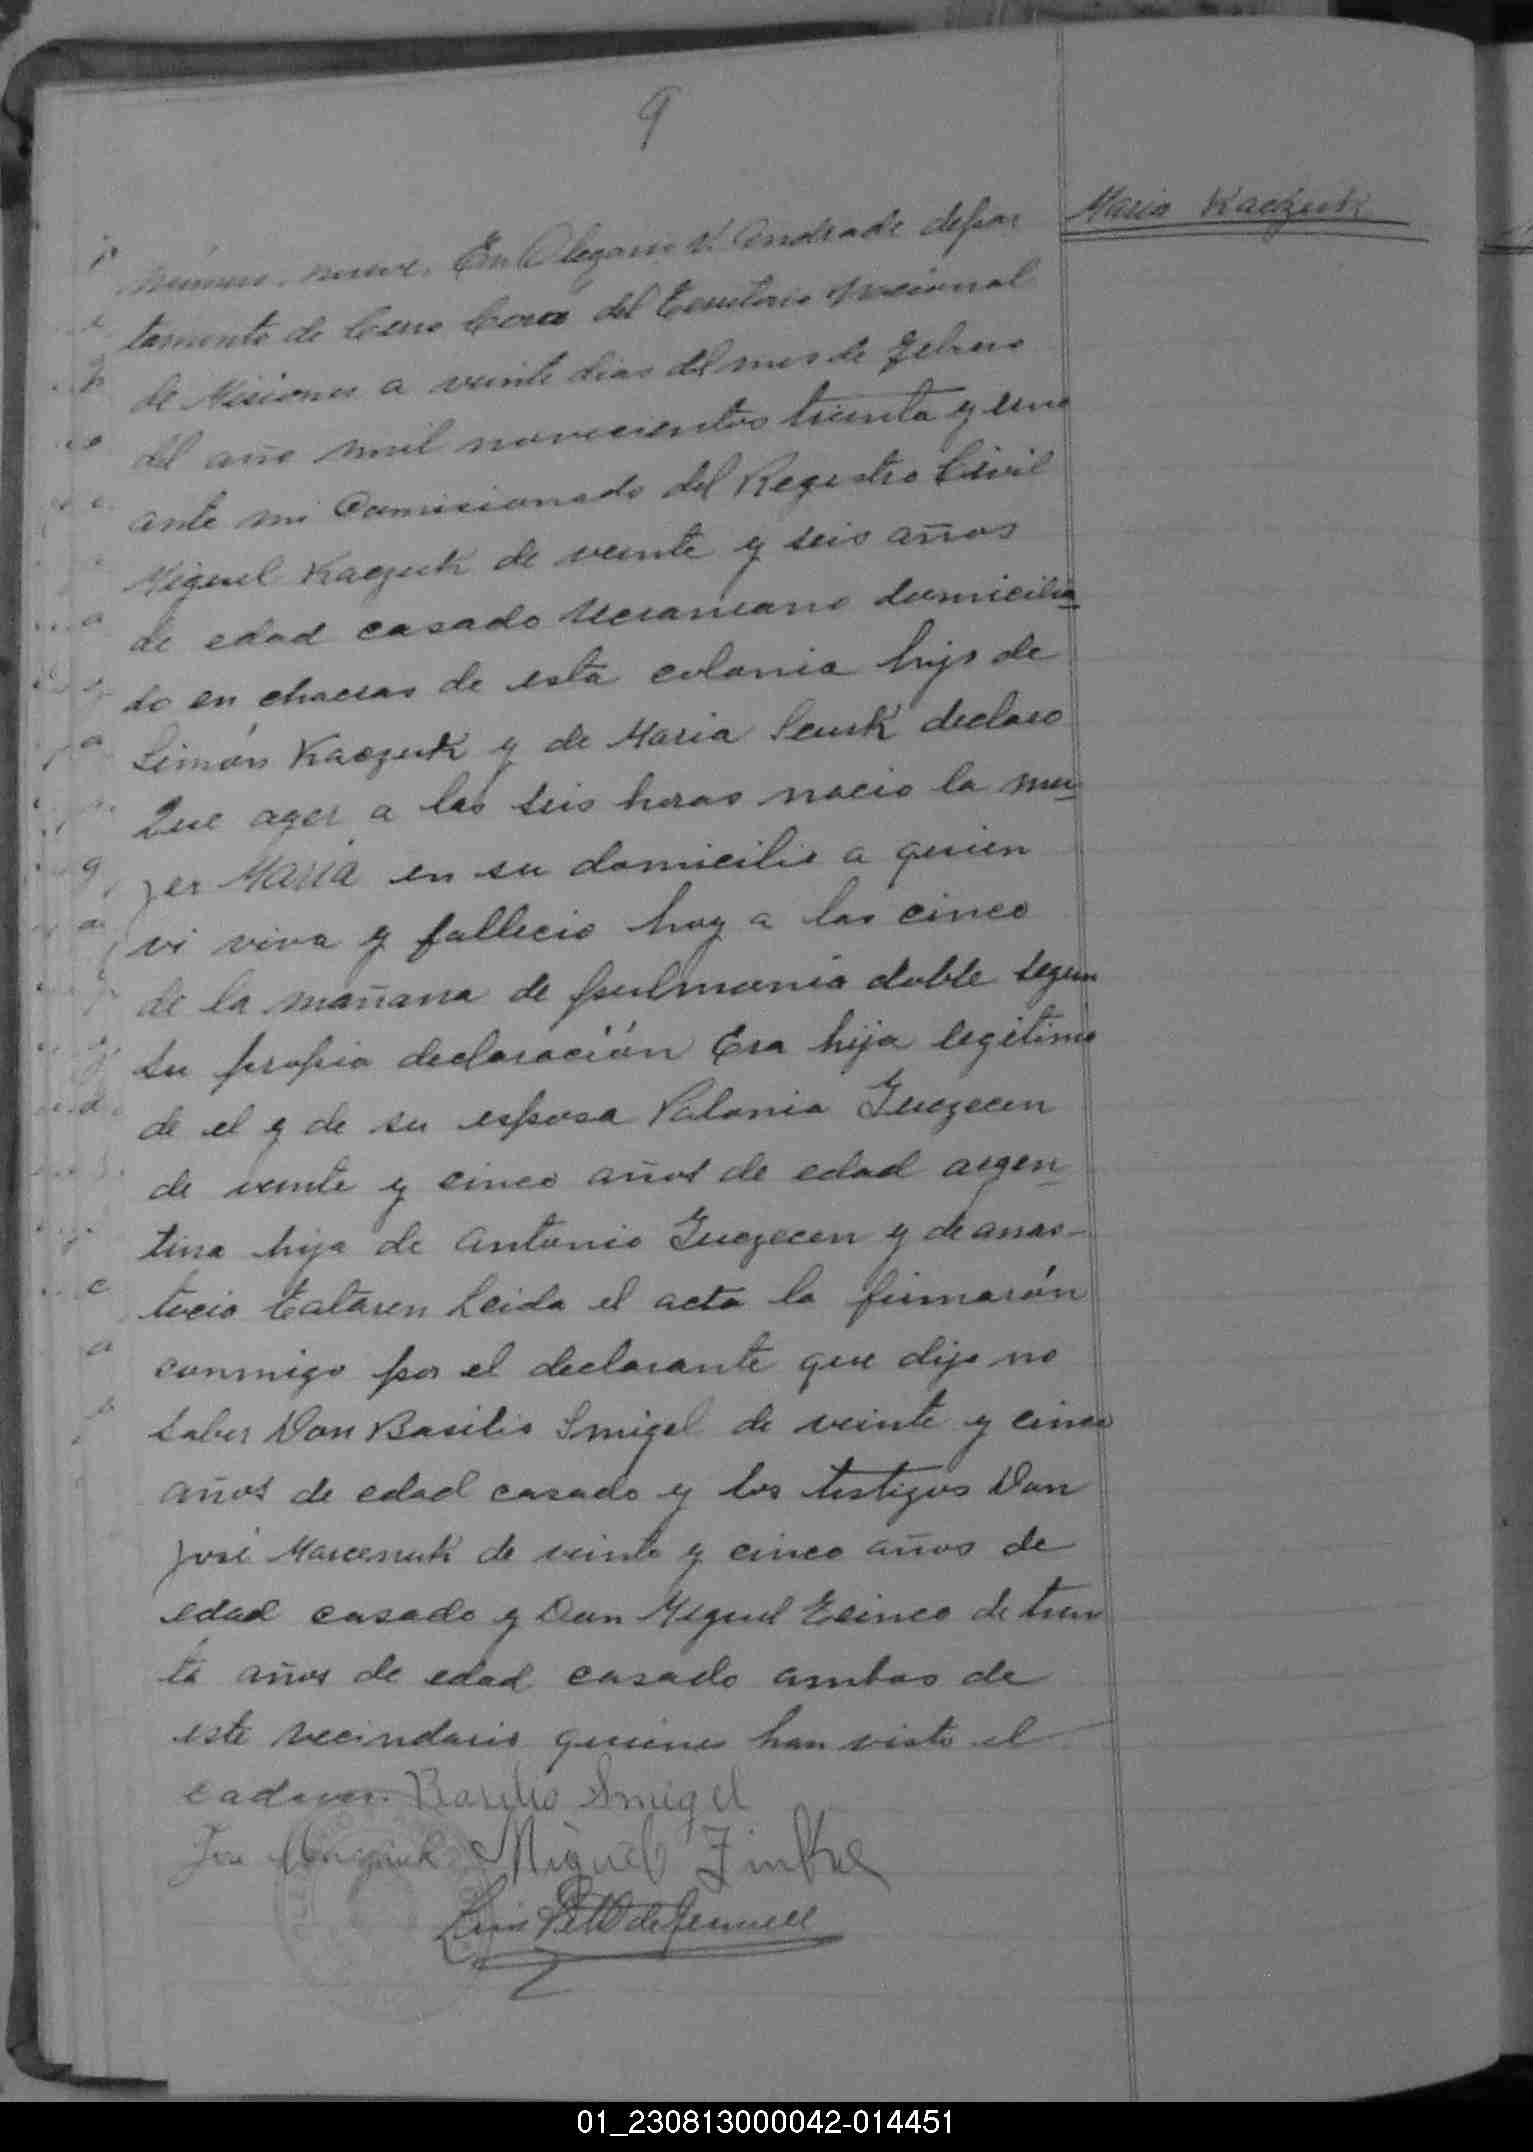 9
Maria Kaczuk
Número nueve. En Olegario V. Andrade depar
tamento de Cerro Corá del Territorio Nacional
de Misiones a veinte dias del mes de Febrero
del año mil novecientos treinta y uno
ante mi Comisionado del Registro Civil
Miguel Kaczuk de veinte y seis años
de edad casado Ucraneano domicilia
do en chacras de esta colonia hijo de
Simón Kaczuk y de Maria declaro
Que ayer a las seis horas nacio la mu
jer Maria en su domicilio a quien
vi viva y fallecio hoy a las cinco
de la mañana de pulmonia doble segun
su propia declaración Era hija legitima
de el y de su esposa Polonia
de veinte y cinco años de edad argen
tina hija de Antonio y de anas-
tacia Leida el acta la firmarón
conmigo por el declarante que dijo no
saber Don Basilio Smigel de veinte y cinco
años de edad casado y los testigos Don
José Marcenuk de veinte y cinco años de
edad casado y Don Miguel de trein
ta años de edad casado ambos de
este vecindario quienes han visto el
cadaver. Basilio Smigel
Miguel
Luis
01_230813000042-014451